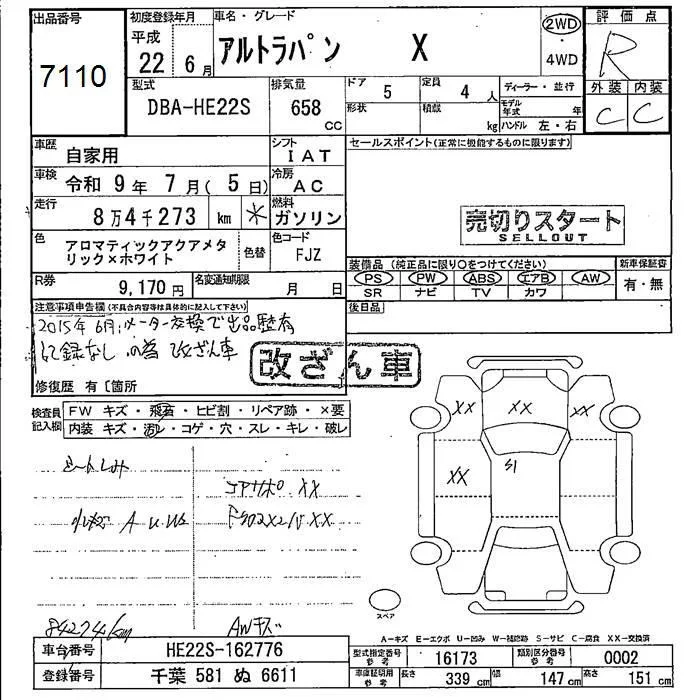 出品番号
7110
初度登録年月
平成
22 6月
車名・グレード
アルトラパン X
2WD
・
4WD
評価点
R
外装 内装
C C
型式
DBA-HE22S
排気量
658
CC
ドア 5
定員 4 人
形状
積載 kg
ディーラー・並行
モデル年式 年
ハンドル 左・右
車歴 自家用
シフト IAT
車検 令和 9年 7月( 5日)
冷房 AC
走行 8万4千273 km *
燃料 ガソリン
色 アロマティックアクアメタリック×ホワイト
色替
色コード FJZ
R券 9,170円
名変通知期限 月 日
セールスポイント(正常に機能するものに限ります)
売切りスタート
SELLOUT
装備品(純正品に限り○をつけてください)
PS PW ABS エアB AW
SR ナビ TV カワ
新車保証書
有・無
後日品
注意事項申告欄(不具合内容等は具体的に記入して下さい)
2015年6月:メーター交換で出品歴有
記録なし の為 改ざん車
改ざん車
修復歴 有〔箇所
検査員記入欄
FW キズ・飛石・ヒビ割・リペア跡・×要
内装 キズ・汚レ・コゲ・穴・スレ・キレ・破レ
シートしみ
コアサポ XX
A U W2
XX
84274km
AWキズ
XX
XX
XX
XX
S1
スペア
A-キズ E-エクボ U-凹み W-補修跡 S-サビ C-腐食 XX-交換済
車台番号 HE22S-162776
登録番号 千葉 581 ぬ 6611
型式指定番号 参考 16173
類別区分番号 参考 0002
車庫証明用 参考 長さ 339cm 幅 147cm 高さ 151cm